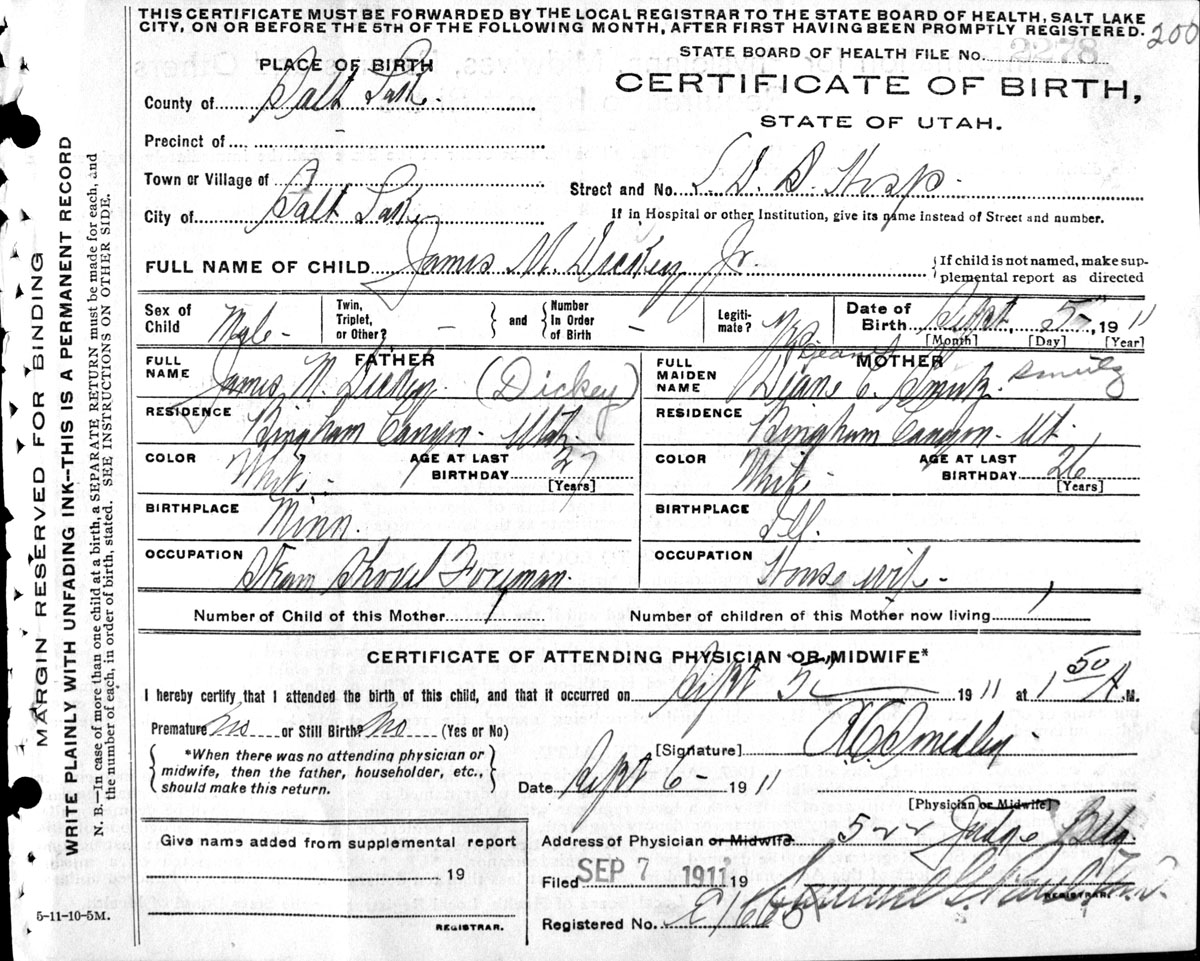 THIS CERTIFICATE MUST BE FORWARDED BY THE LOCAL REGISTRAR TO THE STATE BOARD OF HEALTH, SALT LAKE
CITY, ON OR BEFORE THE 5TH OF THE FOLLOWING MONTH, AFTER FIRST HAVING BEEN PROMPTLY REGISTERED.
200
STATE BOARD OF HEALTH FILE No. 2278
PLACE OF BIRTH
CERTIFICATE OF BIRTH,
STATE OF UTAH.
County of Salt Lake
Precinct of -
Town or Village of
Street and No. L. D. S. Hosp.
City of Salt Lake
If in Hospital or other Institution, give its name instead of Street and number.
FULL NAME OF CHILD James M. Dickey Jr.
If child is not named, make sup-
plemental report as directed
Sex of Child Male -
Twin, Triplet, or Other? -
and
Number In Order of Birth -
Legiti-mate? Yes
Date of Birth Sept. 5, 1911
[Month] [Day] [Year]
FATHER
FULL NAME James M. Dickey (Dickey)
RESIDENCE Bingham Canyon - Utah.
COLOR White
AGE AT LAST BIRTHDAY 37
[Years]
BIRTHPLACE Minn.
OCCUPATION Steam Shovel Foreman.
MOTHER
FULL MAIDEN NAME C. Smutz. Smutz
RESIDENCE Bingham Canyon - Ut.
COLOR White
AGE AT LAST BIRTHDAY 26
[Years]
BIRTHPLACE Ill.
OCCUPATION House wife -
Number of Child of this Mother 1
Number of children of this Mother now living 1
CERTIFICATE OF ATTENDING PHYSICIAN OR MIDWIFE*
I hereby certify, that I attended the birth of this child, and that it occurred on Sept 5 1911 at 1 50 A. M.
Premature No or Still Birth? No (Yes or No)
*When there was no attending physician or
midwife, then the father, householder, etc.,
should make this return.
[Signature] Smedley
Date Sept 6 - 1911
[Physician or Midwife]
Give name added from supplemental report
19
REGISTRAR.
Address of Physician or Midwife 522 Judge Bldg.
Filed SEP 7 1911 19
REGISTRAR.
Registered No. E1665
5-11-10-5M.
MARGIN RESERVED FOR BINDING
WRITE PLAINLY WITH UNFADING INK—THIS IS A PERMANENT RECORD
N. B.—In case of more than one child at a birth, a SEPARATE RETURN must be made for each, and
the number of each, in order of birth, stated. SEE INSTRUCTIONS ON OTHER SIDE.